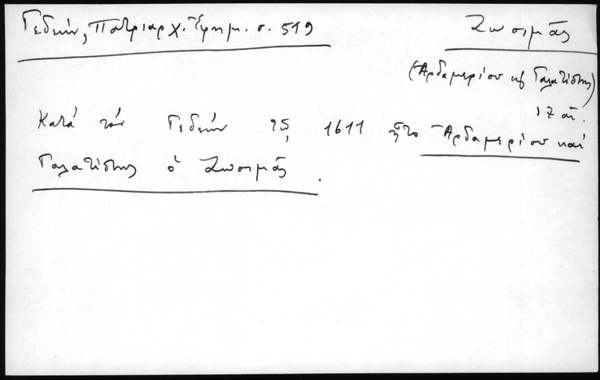 Γεδεών, Πατριαρχ. Ἐφημ. σ. 519
Ζωσιμᾶς
(Ἀρδαμερίου κ Γαλατίστης)
17 αἰ.
Κατά τόν Γεδεών τῷ 1611 ἦτο Ἀρδαμερίου καί
Γαλατίστης ὁ Ζωσιμᾶς.